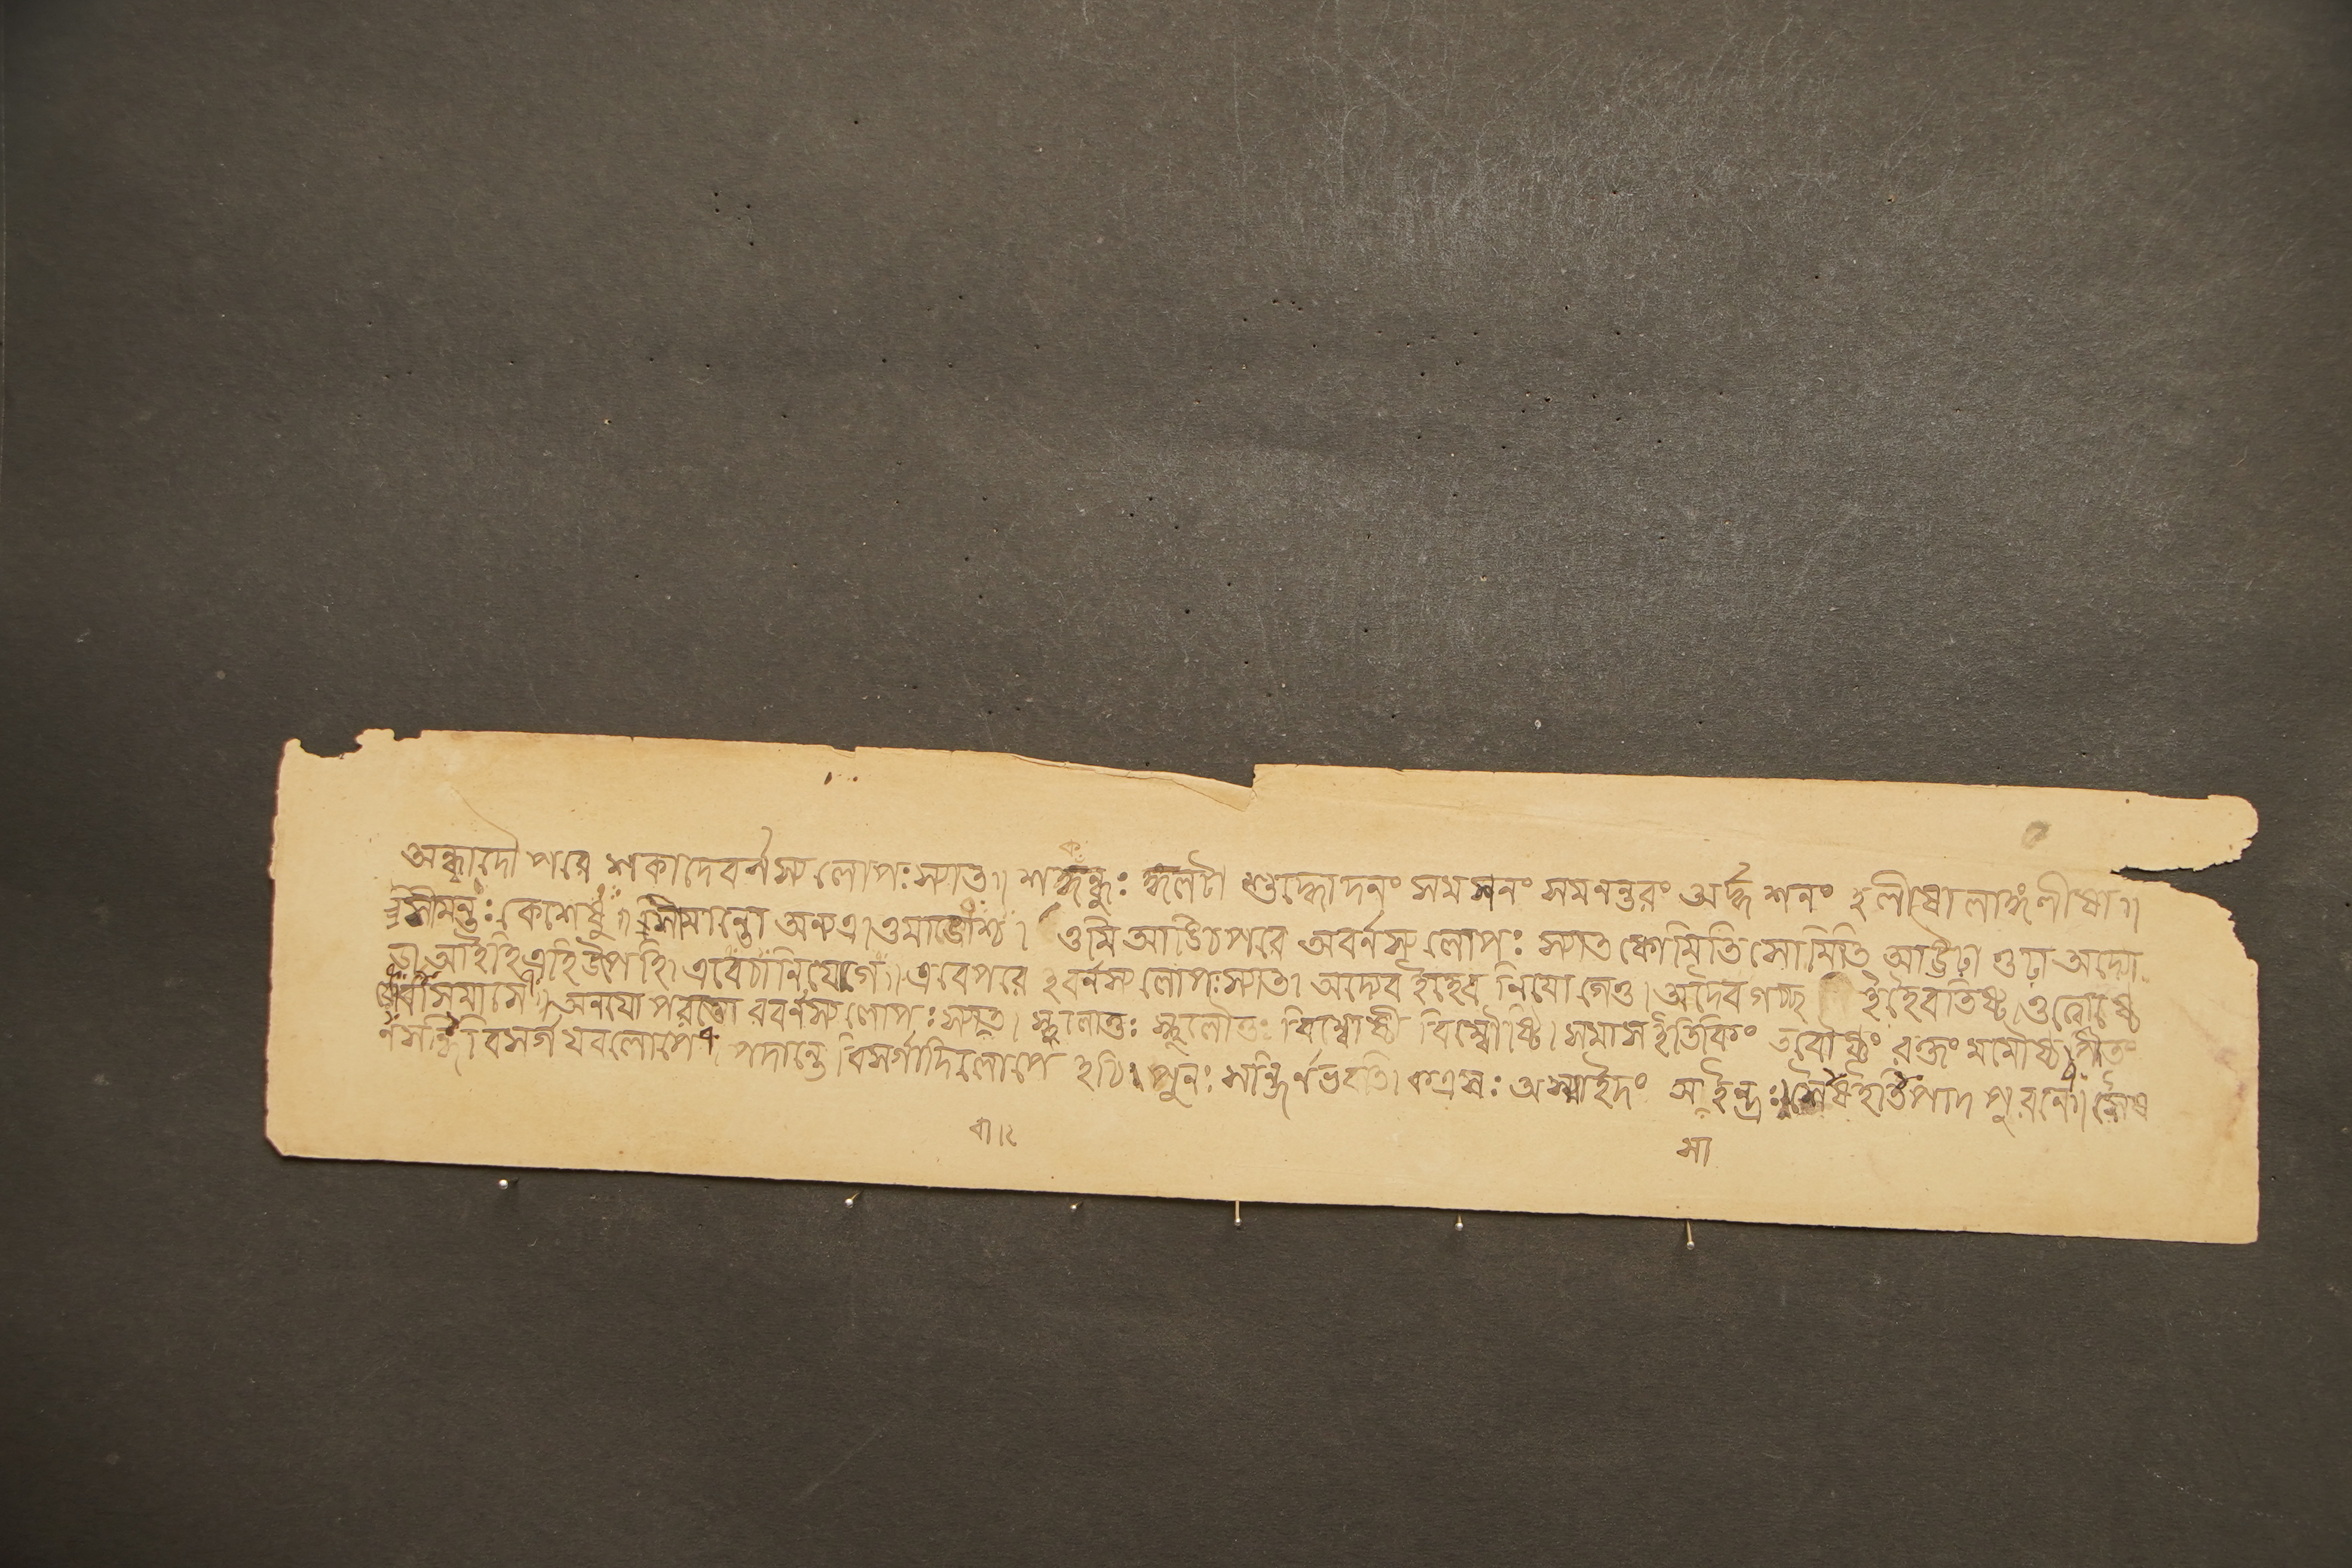 অন্ধাদৌ পরে শকাদেবর্নস্য লোপঃ স্যাত॥ শকন্ধুঃ কুলটা শুদ্ধোদনং সমসনং সমনন্তরং অর্দ্ধশনং হলীষো লাঙ্গলীষা॥
সীমন্তঃ কেশেষু॥ সীমান্তো অন্যত্র। ওমাঙোশ্চ। ওমি আঙিচপরে অবর্নস্য লোপঃ স্যাত কোমিতি সোমিতি আউঢ়া ওঢ়া অদ্যো
ঢ়া আইহি এহি উপেহি। এবেচানিযোগে॥ এবেপরে হবর্নস্য লোপঃ স্যাত। অদ্যেব ইহেব নিযোগেতু। অদৈব গচ্ছ ইহৈবতিষ্ঠ। ওত্বোষ্ঠে
র্বাসমাসে॥ অনযো পরতো রবর্নস্য লোপঃ স্যাত্। স্থুলোতুঃ স্থুলৌতুঃ বিম্বোষ্ঠী বিম্বৌষ্ঠি। সমাস ইতিকিং তবৌষ্ঠং রক্তং মমৌষ্ঠং পীতং
র্নসন্ধি। বিসর্গ যবলোপে। পদান্তে বিসর্গাদিলোপে হচি। পুনঃ সন্ধির্নভবতি। কএসঃ অস্মাইদং সইন্দ্রঃ। সৈষইতি পাদ পুরনে। সৈষ
বা।২
সা